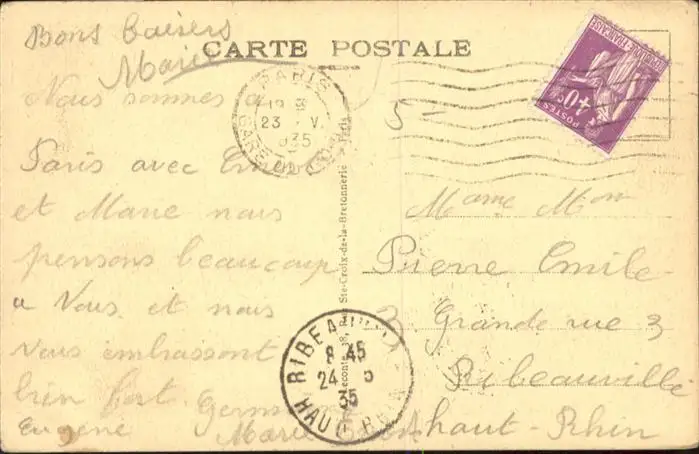 Bons baisers
Marie
CARTE POSTALE
Nous sommes a
Paris avec
et Marie nous
pensons beaucoup
a Vous et nous
vous embrassont
bien fort Germaine
Eugène Marie
PARIS
23 V
GARE DU
Ste-Croix-de-la-Bretonnerie - Paris
RIBEAUVILLE
8 45
24 5
35
HAUT-RHIN
REPUBLIQUE FRANÇAISE
POSTES
40c
5
Mame Mon
Pierre Emile
Grande rue 3
Ribeauvillé
haut-Rhin